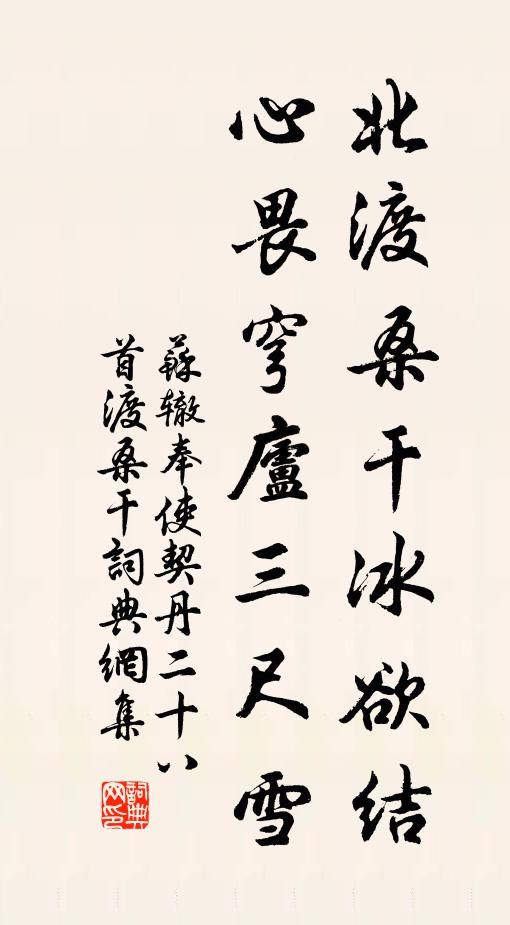 北渡桑干冰欲结
心畏穹廬三尺雪
蘇辙奉使契丹二十八
首渡桑干詞典網集
詞典
网印